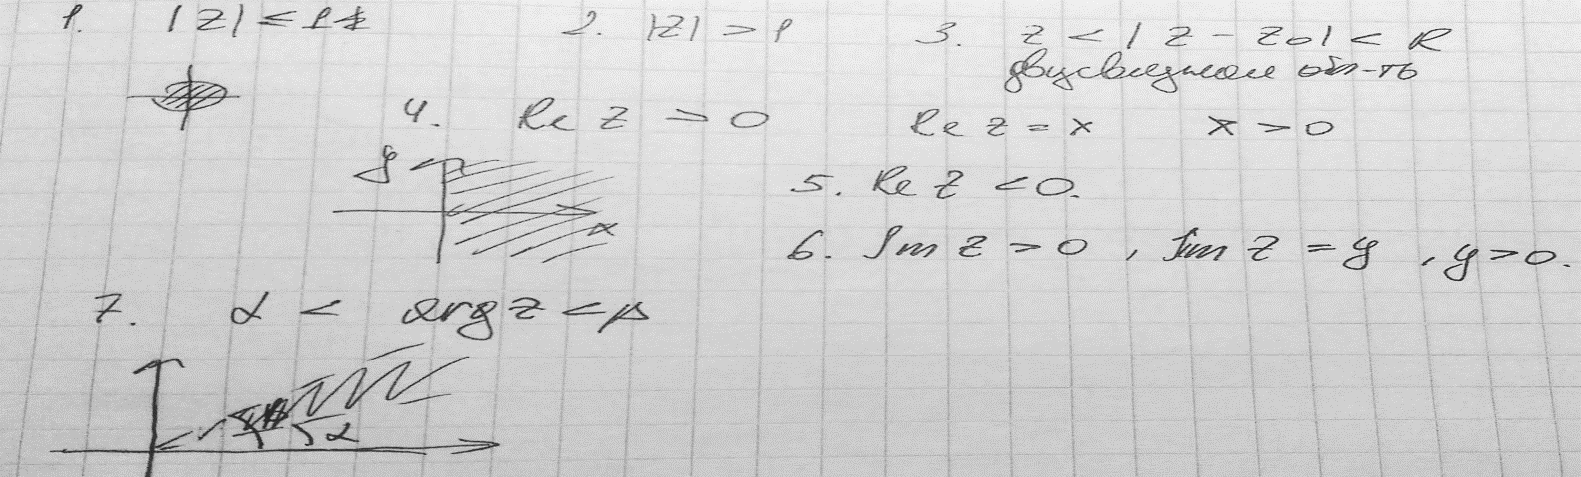 1. |z| ≤ 1
2. |z| > 1
3. z < |z - z₀| < R
двусвязная обл-ть
4. Re z > 0
Re z = x x > 0
y
x
5. Re z < 0.
6. Im z > 0, Im z = y, y > 0.
7. α < arg z < β
α